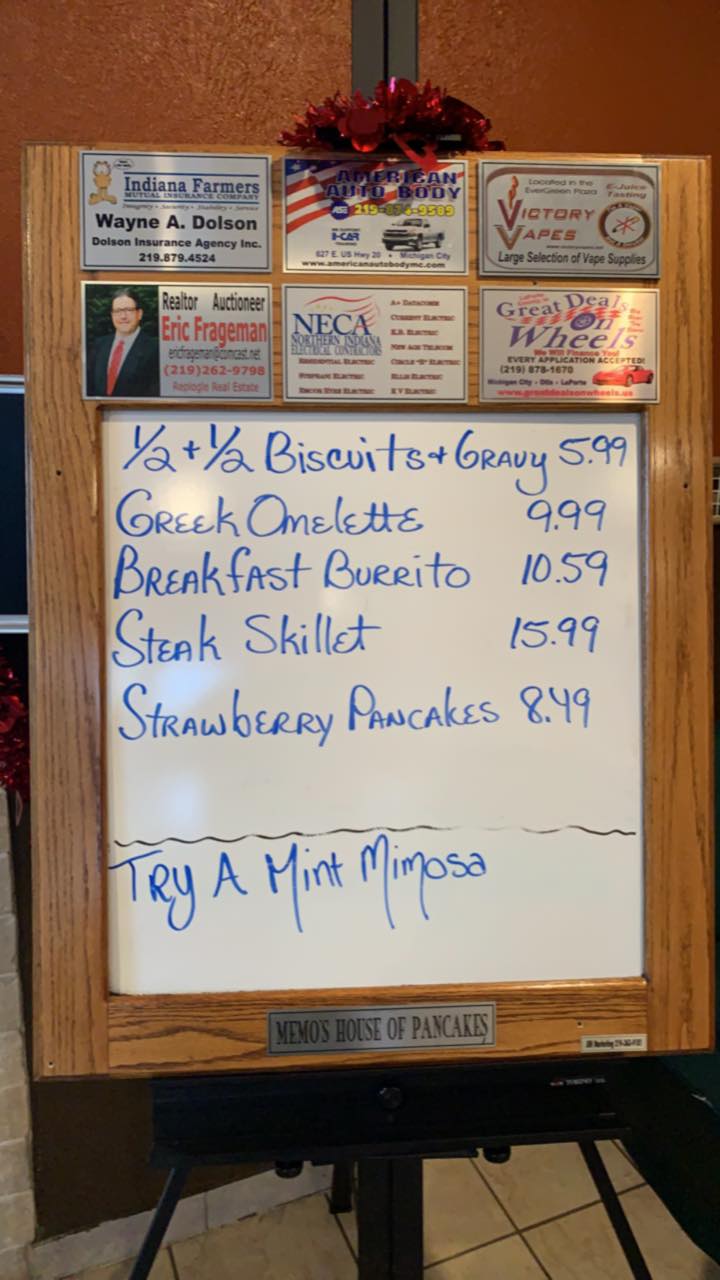 Indiana Farmers
MUTUAL INSURANCE COMPANY
Integrity • Security • Stability • Service
Wayne A. Dolson
Dolson Insurance Agency Inc.
219.879.4524
AMERICAN
AUTO BODY
ASE
WE SUPPORT
I-CAR
TRAINING
627 E. US Hwy 20 • Michigan City
www.americanautobodymc.com
Located in the
EverGreen Plaza
E-Juice
Tasting
VICTORY
VAPES
Large Selection of Vape Supplies
Realtor Auctioneer
Eric Frageman
ericfrageman@comcast.net
(219)262-9798
Replogle Real Estate
NECA
NORTHERN INDIANA
ELECTRICAL CONTRACTORS
A+ DATACOMM
CURRENT ELECTRIC
K.B. ELECTRIC
NEW AGE TELECOM
CIRCLE "R" ELECTRIC
ELLIS ELECTRIC
K V ELECTRIC
Great Deals
On
Wheels
We Will Finance You!
EVERY APPLICATION ACCEPTED!
(219) 878-1670
Michigan City • Otis • LaPorte
www.greatdealsonwheels.us
1/2 + 1/2 Biscuits + Gravy 5.99
Greek Omelette 9.99
Breakfast Burrito 10.59
Steak Skillet 15.99
Strawberry Pancakes 8.49
Try A Mint Mimosa
MEMO'S HOUSE OF PANCAKES